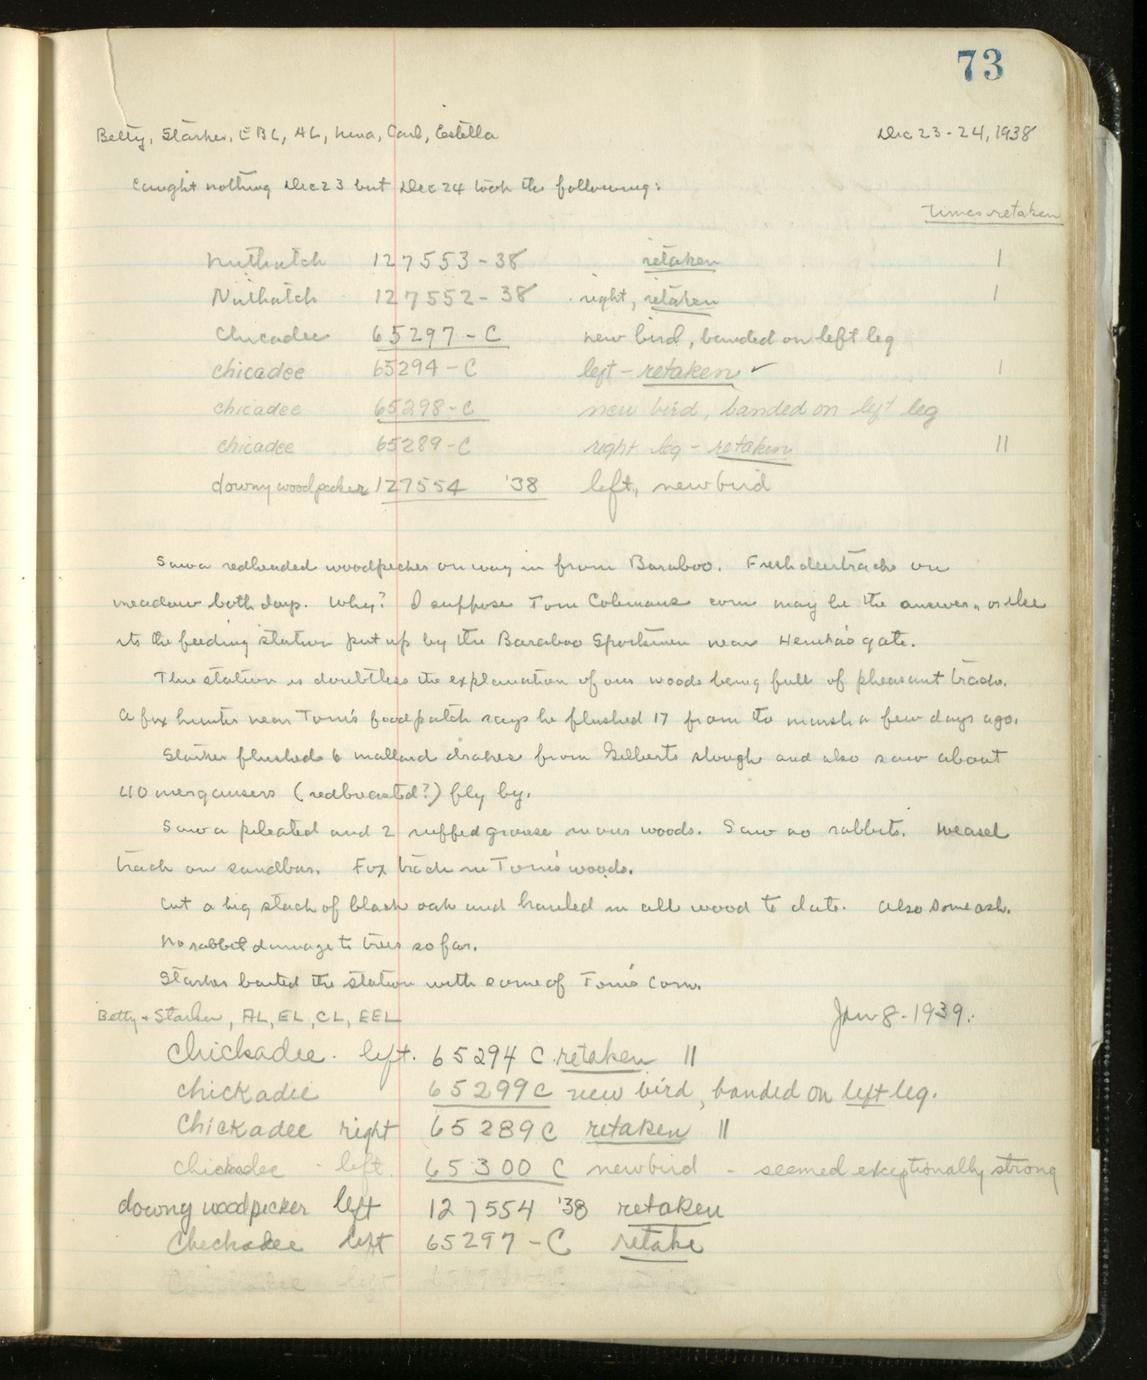 73
Betty, Starker, EBL, AL, Nina, Carl, Estella Dec 23-24, 1938
Caught nothing Dec 23 but Dec 24 took the following:
Times retaken
Nuthatch 127553-38 retaken 1
Nuthatch 127552-38 right, retaken 1
Chicadee 65297-C new bird, banded on left leg
chicadee 65294-C left - retaken ✓ 1
chicadee 65298-C new bird, banded on left leg
chicadee 65289-C right leg - retaken 11
downy woodpecker 127554 '38 left, new bird
Saw a redheaded woodpecker on way in from Baraboo. Fresh deer track on
meadow both days. Why? I suppose Tom Colemans corn may be the answer, or else
its the feeding station put up by the Baraboo Sportsmen near gate.
This station is doubtless the explanation of our woods being full of pheasant tracks.
A fox hunter near Tom's foodpatch says he flushed 17 from the marsh a few days ago.
Starker flushed 6 mallard drakes from Gilberts slough and also saw about
40 mergansers (redbreasted?) fly by.
Saw a pileated and 2 ruffed grouse in our woods. Saw no rabbits. Weasel
track on sandbar. Fox track in Tom's woods.
Cut a big stack of black oak and hauled in all wood to date. Also some ash.
No rabbit damage to trees so far.
Starker baited the station with some of Tom's corn.
Betty + Starker, AL, EL, CL, EEL Jan 8-1939.
Chickadee. left. 65294 C. retaken 11
chickadee 65299C new bird, banded on left leg.
Chickadee right 65289C retaken 11
chickadee - left. 65300 C new bird - seemed exceptionally strong
downy woodpecker left 127554 '38 retaken
Checkadee left 65297-C retake